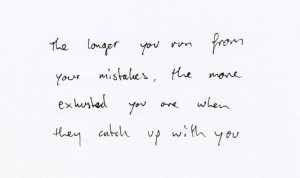 the longer you run from
your mistakes, the more
exhusted you are when
they catch up with you